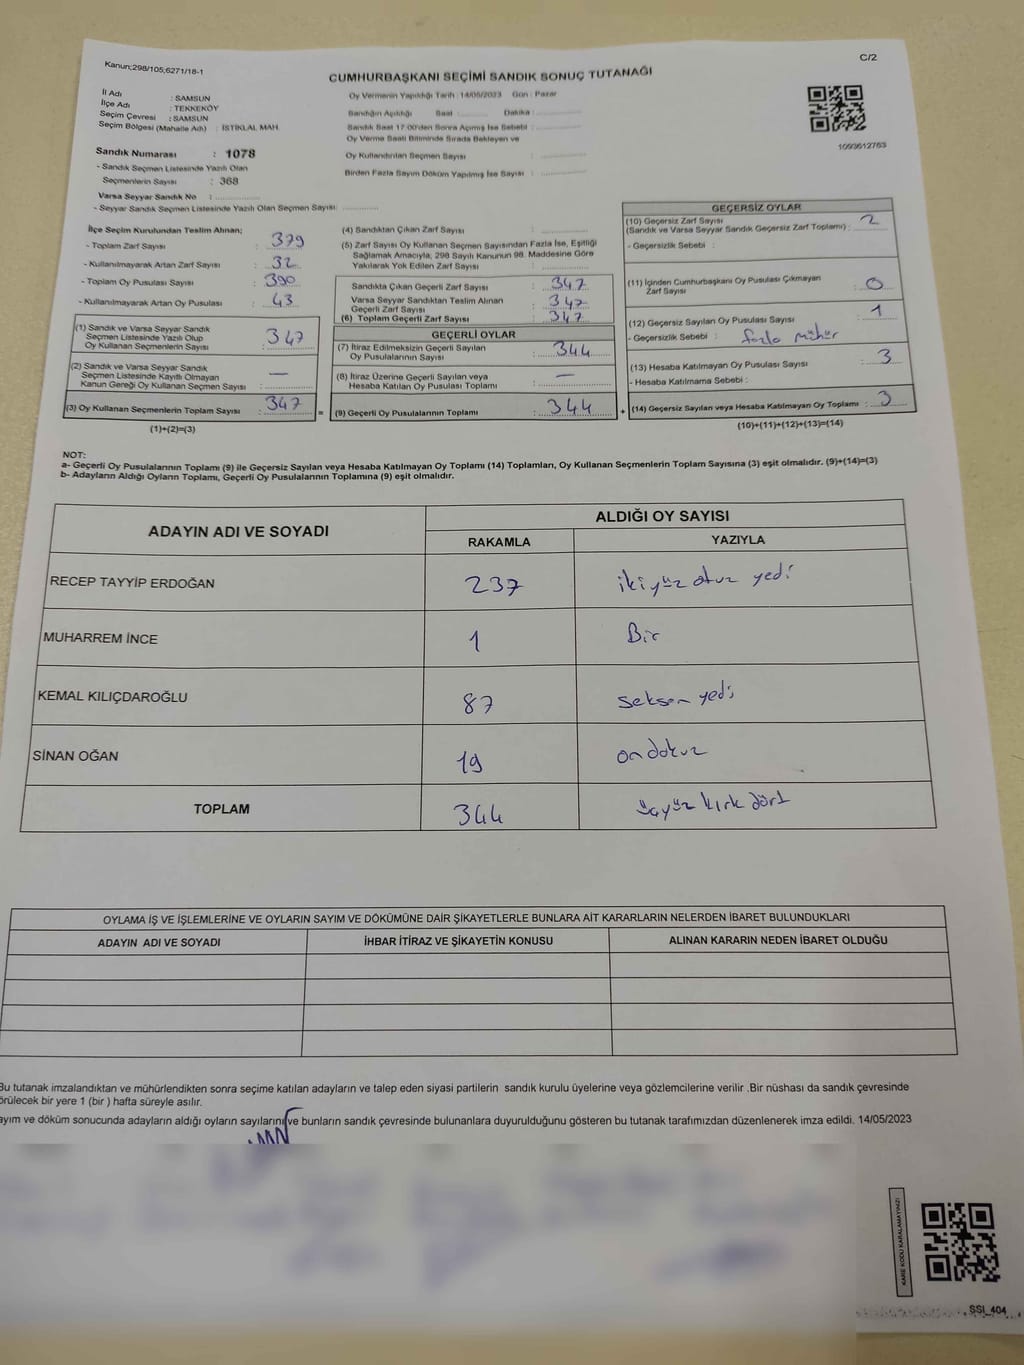 Kanun;298/105;6271/18-1
C/2
CUMHURBAŞKANI SEÇİMİ SANDIK SONUÇ TUTANAĞI
İl Adı : SAMSUN
İlçe Adı : TEKKEKÖY
Seçim Çevresi : SAMSUN
Seçim Bölgesi (Mahalle Adı) : İSTİKLAL MAH.
Oy Vermenin Yapıldığı Tarih : 14/05/2023 Gün : Pazar
Sandığın Açıldığı Saat :......... Dakika :............
Sandık Saat 17:00'den Sonra Açımış İse Sebebi :............
Oy Verme Saati Bitiminde Sırada Bekleyen ve
Oy Kullandırılan Seçmen Sayısı :............
Birden Fazla Sayım Döküm Yapılmış İse Sayısı :............
1093612763
Sandık Numarası : 1078
- Sandık Seçmen Listesinde Yazılı Olan
Seçmenlerin Sayısı : 368
Varsa Seyyar Sandık No :............
- Seyyar Sandık Seçmen Listesinde Yazılı Olan Seçmen Sayısı:............
İlçe Seçim Kurulundan Teslim Alınan;
- Toplam Zarf Sayısı : 379
- Kullanılmayarak Artan Zarf Sayısı : 32
- Toplam Oy Pusulası Sayısı : 390
- Kullanılmayarak Artan Oy Pusulası : 43
(1) Sandık ve Varsa Seyyar Sandık
Seçmen Listesinde Yazılı Olup
Oy Kullanan Seçmenlerin Sayısı : 347
(2) Sandık ve Varsa Seyyar Sandık
Seçmen Listesinde Kayıtlı Olmayan
Kanun Gereği Oy Kullanan Seçmen Sayısı : —
(3) Oy Kullanan Seçmenlerin Toplam Sayısı : 347 =
(1)+(2)=(3)
(4) Sandıktan Çıkan Zarf Sayısı :............
(5) Zarf Sayısı Oy Kullanan Seçmen Sayısından Fazla İse, Eşitliği
Sağlamak Amacıyla, 298 Sayılı Kanunun 98. Maddesine Göre
Yakılarak Yok Edilen Zarf Sayısı :............
Sandıkta Çıkan Geçerli Zarf Sayısı : 347
Varsa Seyyar Sandıktan Teslim Alınan
Geçerli Zarf Sayısı : 347
(6) Toplam Geçerli Zarf Sayısı : 347
GEÇERLİ OYLAR
(7) İtiraz Edilmeksizin Geçerli Sayılan
Oy Pusulalarının Sayısı : 344
(8) İtiraz Üzerine Geçerli Sayılan veya
Hesaba Katılan Oy Pusulası Toplamı : —
(9) Geçerli Oy Pusulalarının Toplamı : 344 +
GEÇERSİZ OYLAR
(10) Geçersiz Zarf Sayısı
(Sandık ve Varsa Seyyar Sandık Geçersiz Zarf Toplamı) : 2
- Geçersizlik Sebebi :
(11) İçinden Cumhurbaşkanı Oy Pusulası Çıkmayan
Zarf Sayısı : 0
(12) Geçersiz Sayılan Oy Pusulası Sayısı : 1
- Geçersizlik Sebebi : fazla mühür
(13) Hesaba Katılmayan Oy Pusulası Sayısı : 3
- Hesaba Katılmama Sebebi :
(14) Geçersiz Sayılan veya Hesaba Katılmayan Oy Toplamı : 3
(10)+(11)+(12)+(13)=(14)
NOT:
a- Geçerli Oy Pusulalarının Toplamı (9) ile Geçersiz Sayılan veya Hesaba Katılmayan Oy Toplamı (14) Toplamları, Oy Kullanan Seçmenlerin Toplam Sayısına (3) eşit olmalıdır. (9)+(14)=(3)
b- Adayların Aldığı Oyların Toplamı, Geçerli Oy Pusulalarının Toplamına (9) eşit olmalıdır.
ADAYIN ADI VE SOYADI
ALDIĞI OY SAYISI
RAKAMLA YAZIYLA
RECEP TAYYİP ERDOĞAN 237 ikiyüz otuz yedi
MUHARREM İNCE 1 Bir
KEMAL KILIÇDAROĞLU 87 seksen yedi
SİNAN OĞAN 19 on dokuz
TOPLAM 344 üçyüz kırk dört
OYLAMA İŞ VE İŞLEMLERİNE VE OYLARIN SAYIM VE DÖKÜMÜNE DAİR ŞİKAYETLERLE BUNLARA AİT KARARLARIN NELERDEN İBARET BULUNDUKLARI
ADAYIN ADI VE SOYADI İHBAR İTİRAZ VE ŞİKAYETİN KONUSU ALINAN KARARIN NEDEN İBARET OLDUĞU
Bu tutanak imzalandıktan ve mühürlendikten sonra seçime katılan adayların ve talep eden siyasi partilerin sandık kurulu üyelerine veya gözlemcilerine verilir .Bir nüshası da sandık çevresinde
örülecek bir yere 1 (bir ) hafta süreyle asılır.
ayım ve döküm sonucunda adayların aldığı oyların sayılarını ve bunların sandık çevresinde bulunanlara duyurulduğunu gösteren bu tutanak tarafımızdan düzenlenerek imza edildi. 14/05/2023
KARE KODU KARALAMAYINIZ!
SSI_404